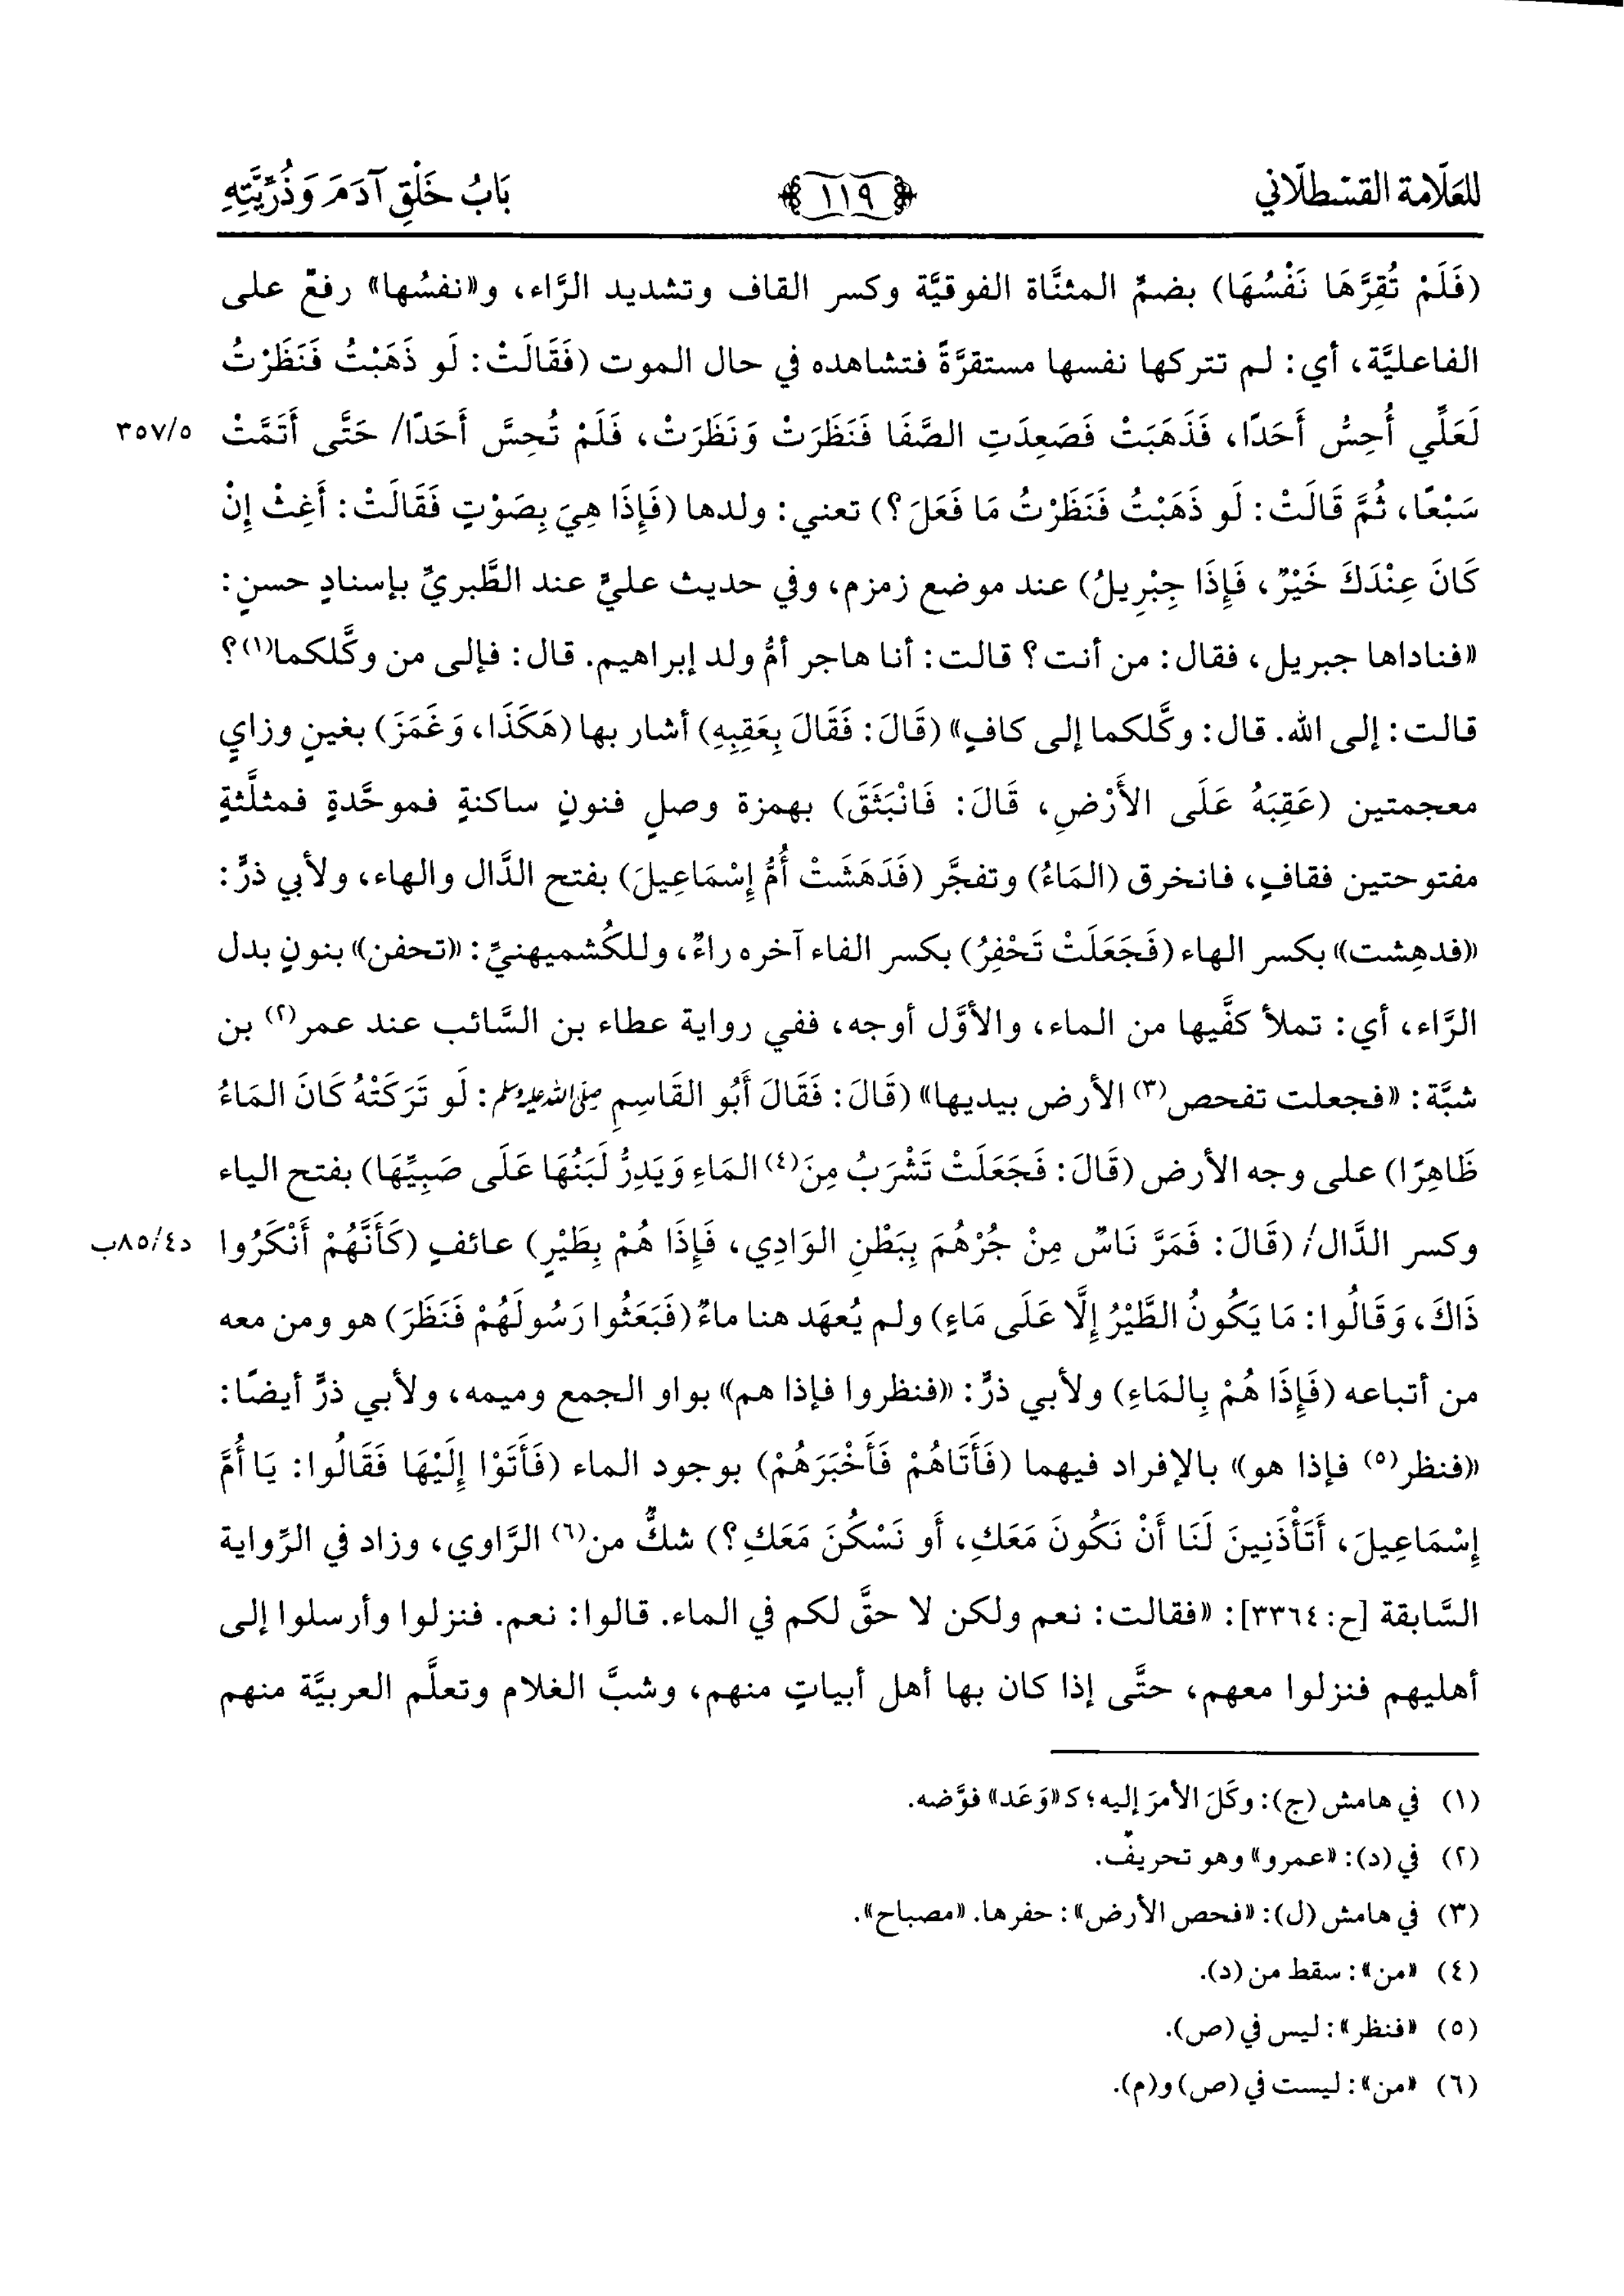 للعَلّامة القسْطلّاني ﴿١١٩﴾ بَابُ خَلْقِ آدَمَ وَذُرِّيَّتِهِ
(فَلَمْ تُقِرَّهَا نَفْسُهَا) بضمِّ المثنَّاة الفوقيَّة وكسر القاف وتشديد الرَّاء، و«نفسُها» رفعٌ على
الفاعليَّة، أي: لم تتركها نفسها مستقرَّةً فتشاهده في حال الموت (فَقَالَتْ: لَو ذَهَبْتُ فَنَظَرْتُ
لَعَلِّي أُحِسُّ أَحَدًا، فَذَهَبَتْ فَصَعِدَتِ الصَّفَا فَنَظَرَتْ وَنَظَرَتْ، فَلَمْ تُحِسَّ أَحَدًا/ حَتَّى أَتَمَّتْ ٣٥٧/٥
سَبْعًا، ثُمَّ قَالَتْ: لَو ذَهَبْتُ فَنَظَرْتُ مَا فَعَلَ؟) تعني: ولدها (فَإِذَا هِيَ بِصَوْتٍ فَقَالَتْ: أَغِثْ إِنْ
كَانَ عِنْدَكَ خَيْرٌ، فَإِذَا جِبْرِيلُ) عند موضع زمزم، وفي حديث عليٍّ عند الطَّبريِّ بإسنادٍ حسنٍ:
«فناداها جبريل، فقال: من أنت؟ قالت: أنا هاجر أمُّ ولد إبراهيم. قال: فإلى من وكَّلكما(١)؟
قالت: إلى الله. قال: وكَّلكما إلى كافٍ» (قَالَ: فَقَالَ بِعَقِبِهِ) أشار بها (هَكَذَا، وَغَمَزَ) بغينٍ وزايٍ
معجمتين (عَقِبَهُ عَلَى الأَرْضِ، قَالَ: فَانْبَثَقَ) بهمزة وصلٍ فنونٍ ساكنةٍ فموحَّدةٍ فمثلَّثةٍ
مفتوحتين فقافٍ، فانخرق (المَاءُ) وتفجَّر (فَدَهَشَتْ أُمُّ إِسْمَاعِيلَ) بفتح الدَّال والهاء، ولأبي ذرٍّ:
«فدهِشت» بكسر الهاء (فَجَعَلَتْ تَحْفِرُ) بكسر الفاء آخره راءٌ، وللكُشميهنيِّ: «تحفن» بنونٍ بدل
الرَّاء، أي: تملأ كفَّيها من الماء، والأوَّل أوجه، ففي رواية عطاء بن السَّائب عند عمر(٢) بن
شبَّة: «فجعلت تفحص(٣) الأرض بيديها» (قَالَ: فَقَالَ أَبُو القَاسِمِ صلى الله عليه وسلم: لَو تَرَكَتْهُ كَانَ المَاءُ
ظَاهِرًا) على وجه الأرض (قَالَ: فَجَعَلَتْ تَشْرَبُ مِنَ(٤) المَاءِ وَيَدِرُّ لَبَنُهَا عَلَى صَبِيِّهَا) بفتح الياء
وكسر الدَّال/ (قَالَ: فَمَرَّ نَاسٌ مِنْ جُرْهُمَ بِبَطْنِ الوَادِي، فَإِذَا هُمْ بِطَيْرٍ) عائفٍ (كَأَنَّهُمْ أَنْكَرُوا د٨٥/٤ب
ذَاكَ، وَقَالُوا: مَا يَكُونُ الطَّيْرُ إِلَّا عَلَى مَاءٍ) ولم يُعهَد هنا ماءٌ (فَبَعَثُوا رَسُولَهُمْ فَنَظَرَ) هو ومن معه
من أتباعه (فَإِذَا هُمْ بِالمَاءِ) ولأبي ذرٍّ: «فنظروا فإذا هم» بواو الجمع وميمه، ولأبي ذرٍّ أيضًا:
«فنظر(٥) فإذا هو» بالإفراد فيهما (فَأَتَاهُمْ فَأَخْبَرَهُمْ) بوجود الماء (فَأَتَوْا إِلَيْهَا فَقَالُوا: يَا أُمَّ
إِسْمَاعِيلَ، أَتَأْذَنِينَ لَنَا أَنْ نَكُونَ مَعَكِ، أَو نَسْكُنَ مَعَكِ؟) شكٌّ من(٦) الرَّاوي، وزاد في الرِّواية
السَّابقة [ح: ٣٣٦٤]: «فقالت: نعم ولكن لا حقَّ لكم في الماء. قالوا: نعم. فنزلوا وأرسلوا إلى
أهليهم فنزلوا معهم، حتَّى إذا كان بها أهل أبياتٍ منهم، وشبَّ الغلام وتعلَّم العربيَّة منهم
(١) في هامش (ج): وكَلَ الأمرَ إليه؛ كـ«وَعَد» فوَّضه.
(٢) في (د): «عمرو» وهو تحريفٌ.
(٣) في هامش (ل): «فحص الأرض»: حفرها. «مصباح».
(٤) «من»: سقط من (د).
(٥) «فنظر»: ليس في (ص).
(٦) «من»: ليست في (ص) و(م).